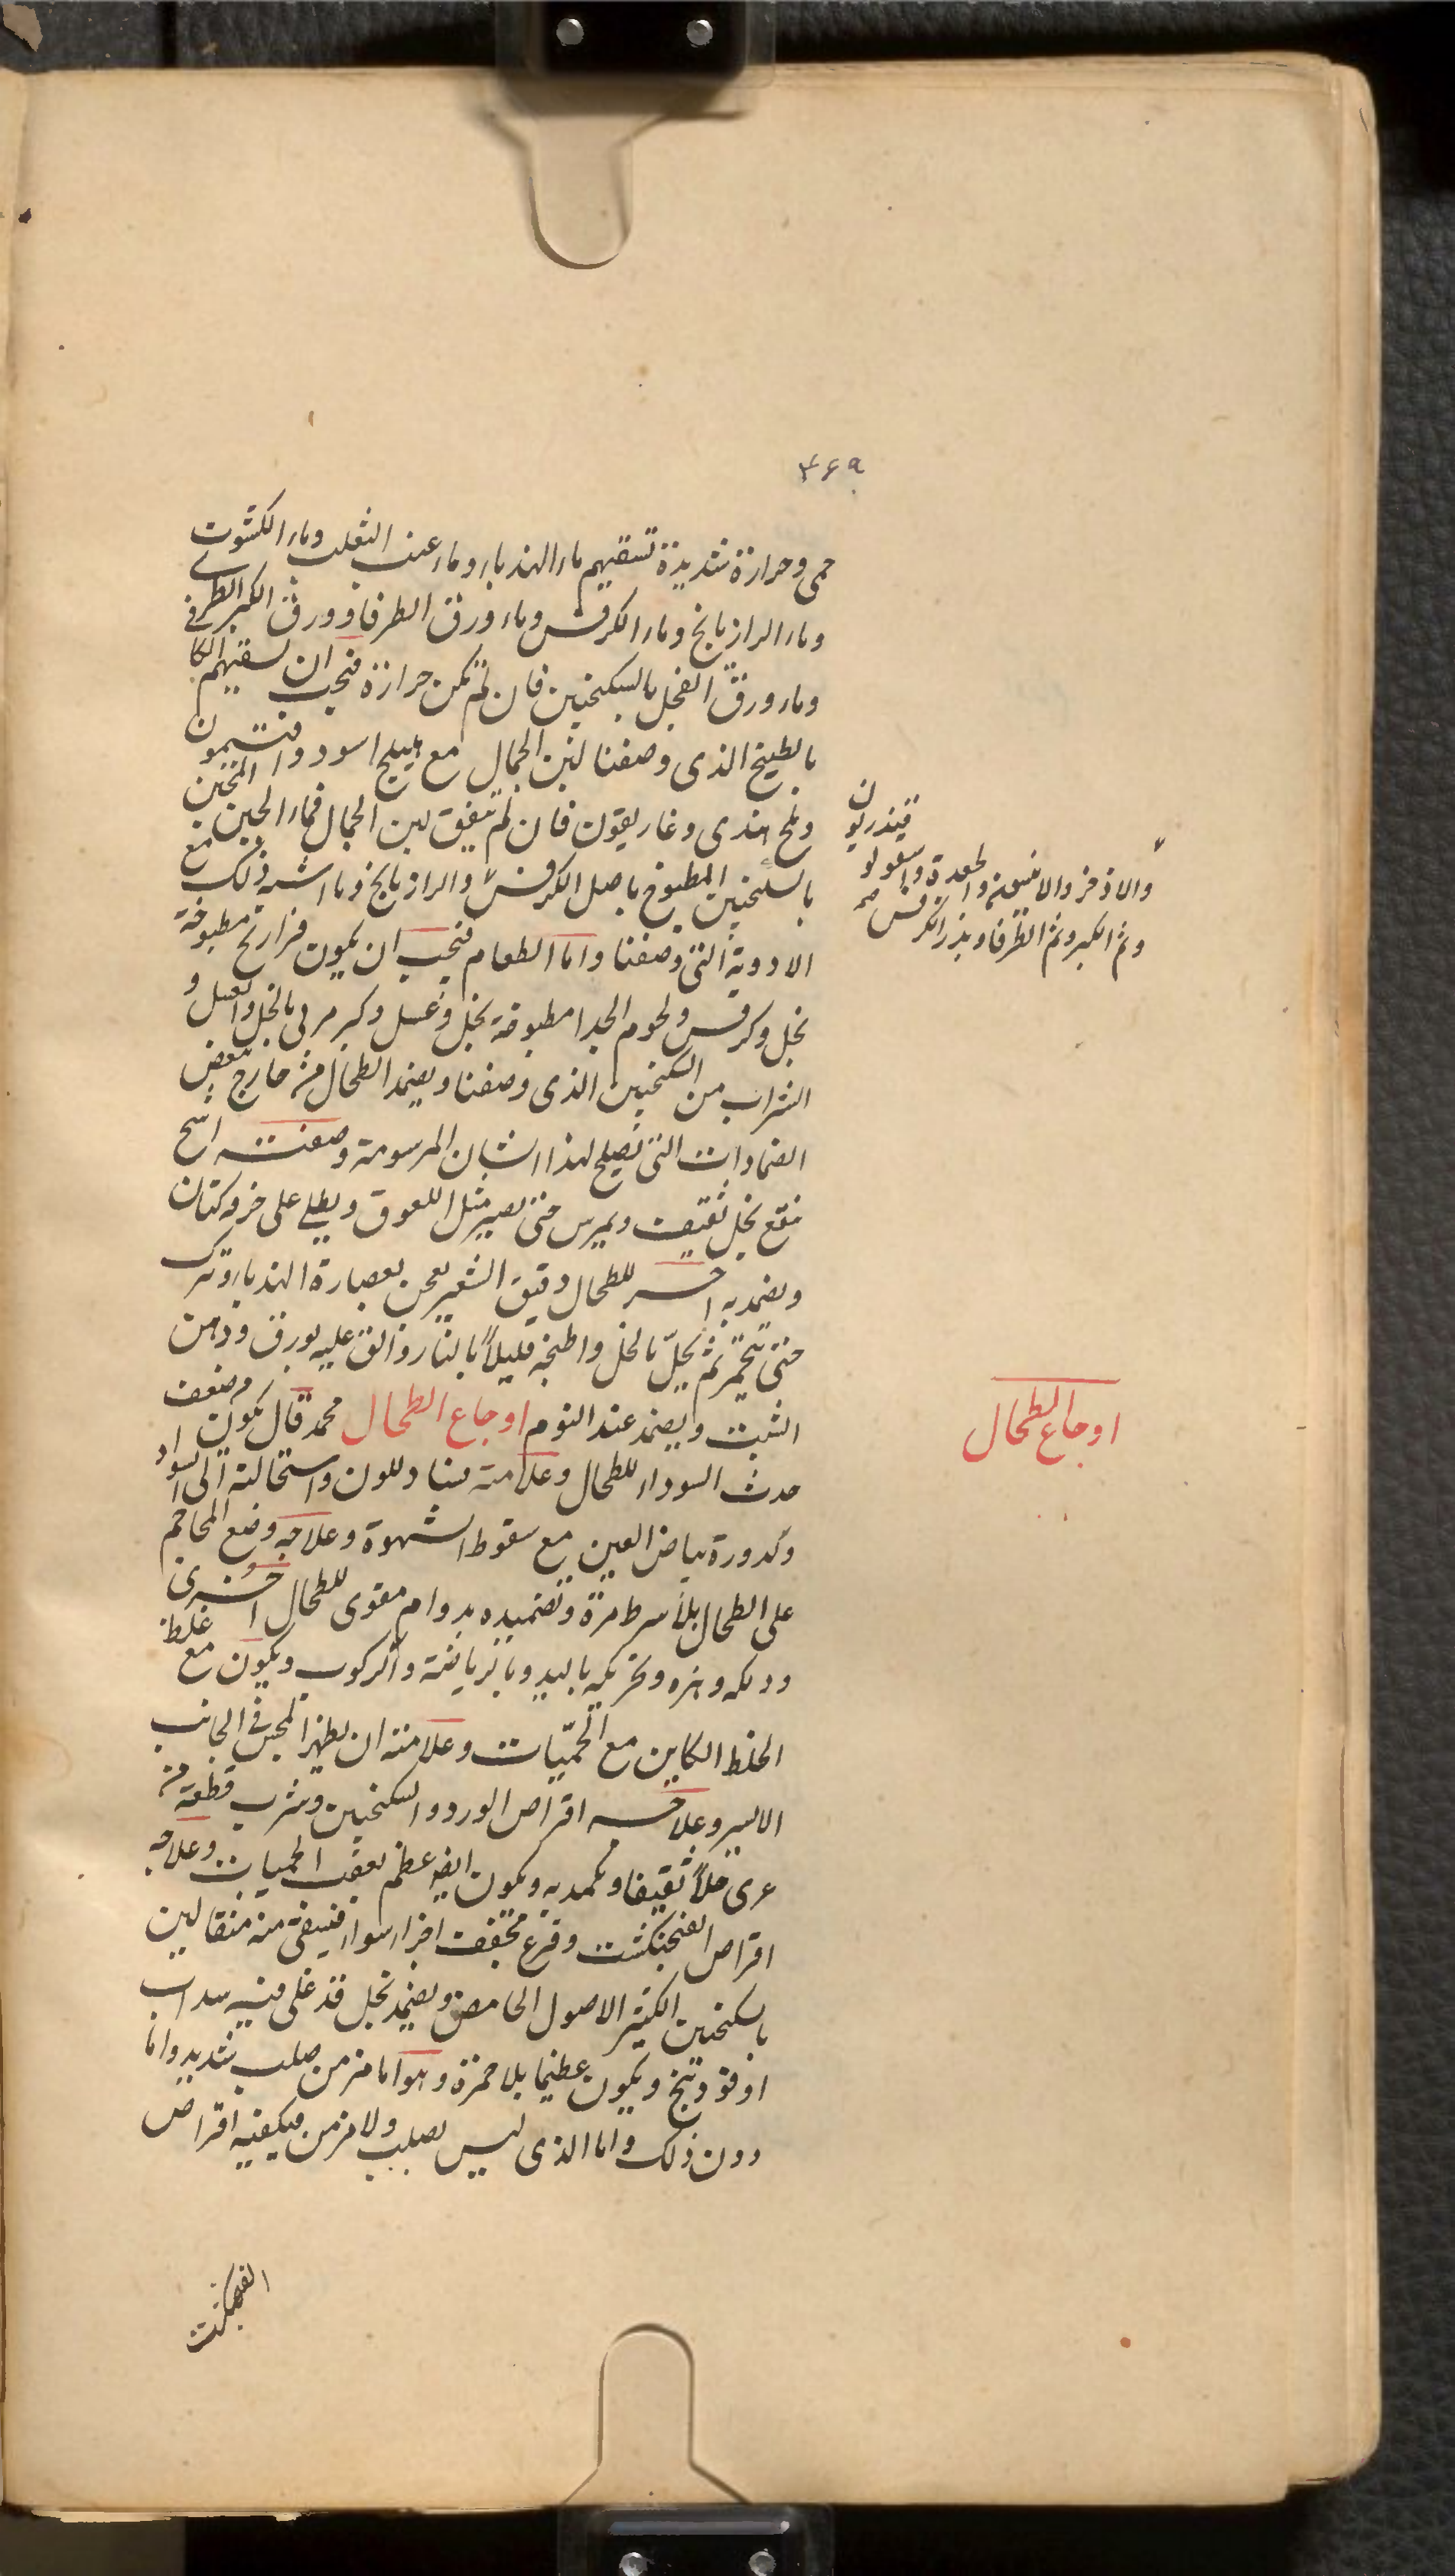 ۳۶۹
حمى وحرارة شديدة تسقيهم ماء الهندباء وماء عنب الثعلب وماء الكشوث
وماء الرازيانج وماء الكرفس وماء ورق الطرفا وورق الكبر الطرى
وماء ورق الفجل بالسكنجبين فان لم تكن حرارة فيجب ان تسقيهم
بالطبيخ الذى وصفنا لبن الجمال مع هليلج اسود وافتيمون
وملح هندى وغاريقون فان لم يتفق لبن الجمال فماء الجبن المتخذ
بالسكنجبين المطبوخ باصل الكرفس والرازيانج وما اشبه ذلك مع
الادوية التى وصفنا واما الطعام فيجب ان يكون فراريج مطبوخة
بخل وكرفس ولحوم الجدا مطبوخة بخل وعسل وكبر مربى بالخل والعسل و
الشراب من السكنجبين الذى وصفنا ويضمد الطحال من خارج ببعض
الضمادات التى تصلح لهذا الشان المرسومة وصفته اشج
منقع بخل ثقيف ويمرس حتى يصير مثل اللعوق ويطلى على خرقه كتان
ويضمد به اخر للطحال دقيق الشعير يعجن بعصارة الهندباء ويترك
حتى يتخمر ثم يحلّ بالخل واطبخه قليلاً بالنار والق عليه بورق ودهن
الشبث ويضمد عند النوم اوجاع الطحال محمد قال يكون وضعف
حدث السوداء للطحال وعلامته فساد اللون واستحالته الى السواد
وكدورة بياض العين مع سقوط الشهوة وعلاجه وضع المحاجم
على الطحال بلا شرط مرة وتضميده بدوام مقوى للطحال اخرى
ودلكه وهزه وتحريكه باليد وبالرياضة والركوب ويكون مع غلظ
الخلط الكاين مع الحمّيات وعلامته ان يظهر المجس فى الجانب
الايسر وعلاجه اقراص الورد والسكنجبين وشرب قطعة من
عرى خلاً ثقيفا ويكمد به ويكون ايضا عظم بعقب الحميات وعلاجه
اقراص الفنجنكشت وقرع مجفف اجزاء سواء فيسقى منه مثقالين
بالسكنجبين الكثير الاصول الحامض ويضمد بخل قد غلى فيه سداب
او فودنج ويكون عظيما بلا حمرة وهو اما مزمن صلب شديد واما
دون ذلك واما الذى ليس بصلب ولا مزمن فيكفيه اقراص
الفنجنكشت
والاذخر والافسنتين والجعدة واسقولو قيندريون
وثمر الكبر وثمر الطرفا وبذر الكرفس صح
اوجاع الطحال